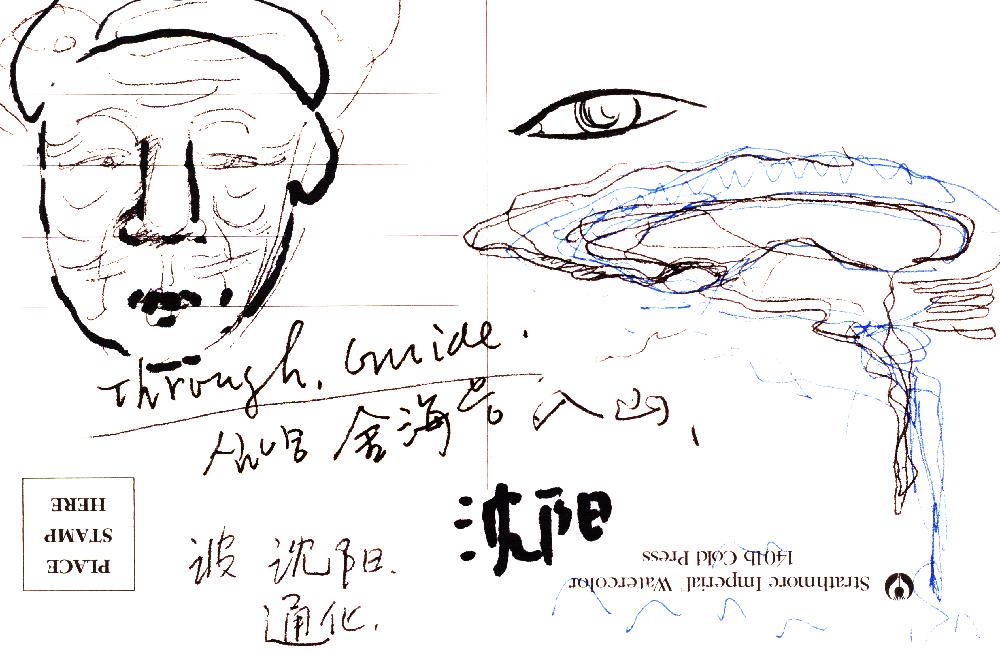 Through. Guide.
舍海 入山,
沈阳
PLACE
STAMP
HERE
沈阳.
通化.
Strathmore Imperial Watercolor
140lb Cold Press